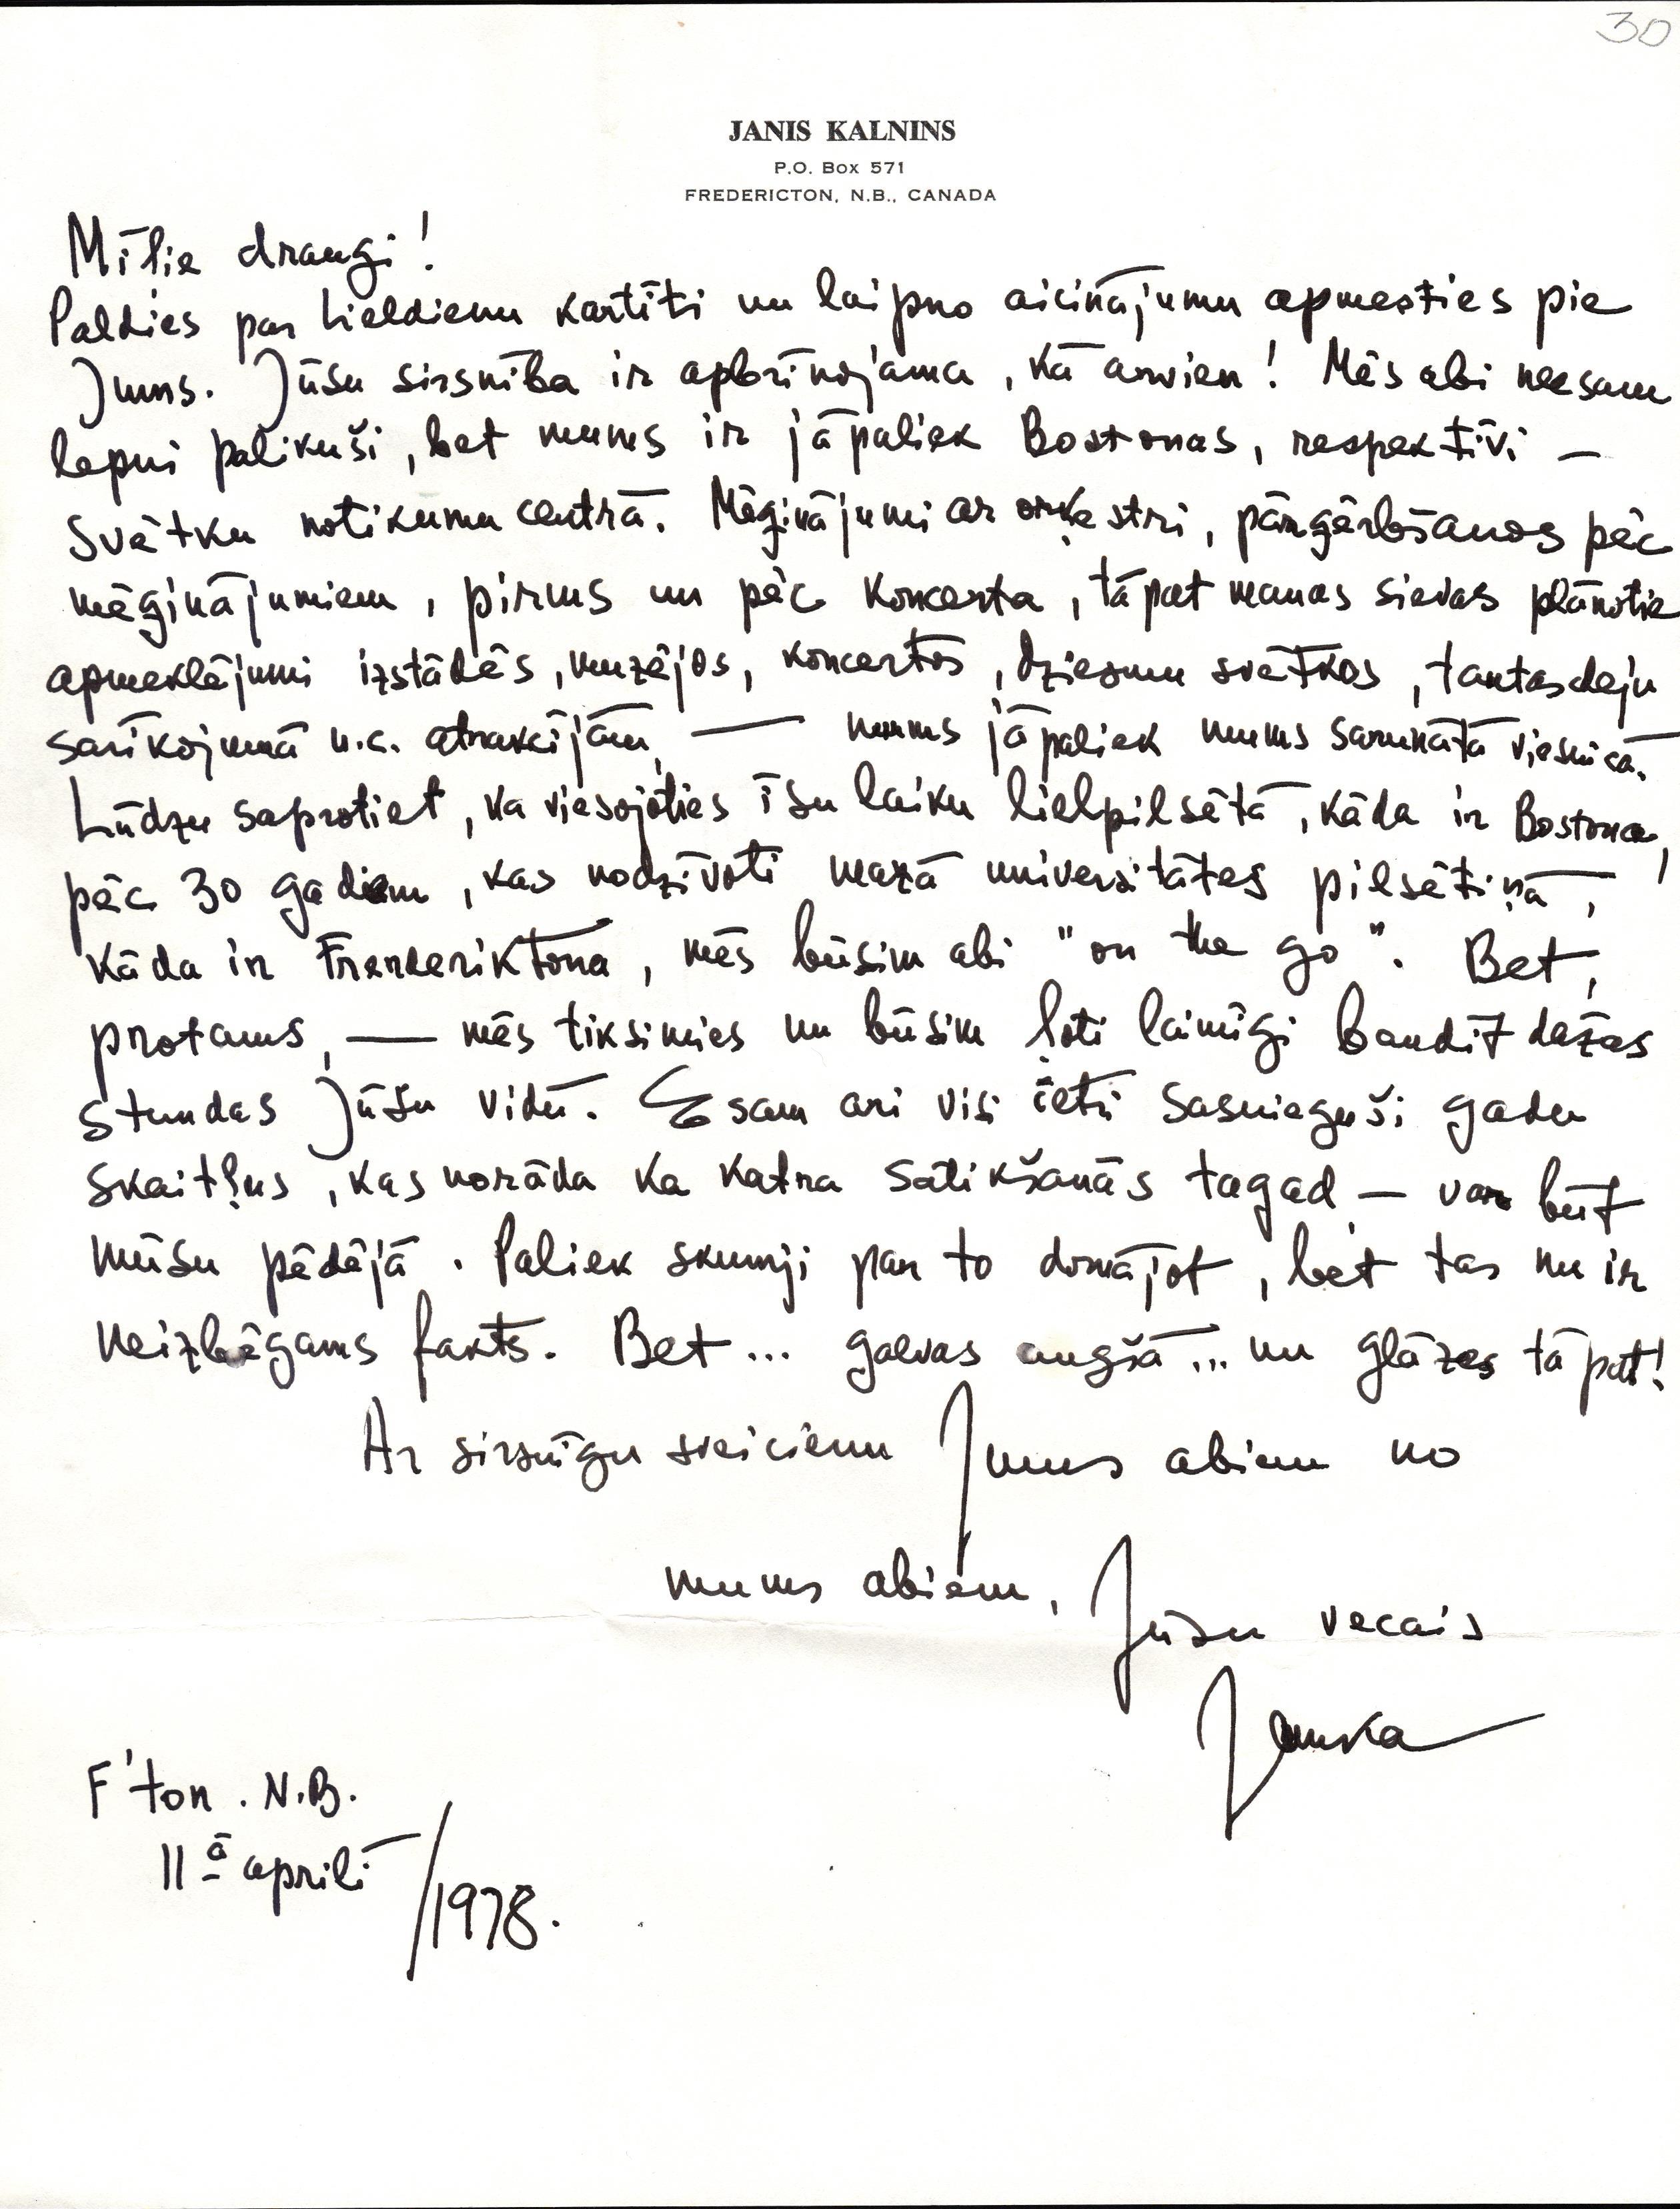 30
JANIS KALNINS
P.O. Box 571
FREDERICTON, N.B., CANADA
Mīļie draugi!
Paldies par Lieldienu kartīti un laipno aicinājumu apmesties pie
Jums. Jūsu sirsnība ir apbrīnojama, kā arvien! Mēs abi neesam
lepni palikuši, bet mums ir jāpaliek Bostonas, respektīvi —
Svētku notikumu centrā. Mēģinājumi ar orķestri, pārģērbšanos pēc
mēģinājumiem, pirms un pēc koncerta, tāpat manas sievas plānotie
apmeklējumi izstādēs, muzējos, koncertos, dziesmu svētkos, tautas deju
sarīkojumā u.c. atrakcijām, — mums jāpaliek mums sarunātā viesnīcā.
Lūdzu saprotiet, ka viesojoties īsu laiku lielpilsētā, kāda ir Bostona,
pēc 30 gadiem, kas nodzīvoti mazā universitātes pilsētiņā,
kāda ir Frederiktona, mēs būsim abi "on the go". Bet,
protams, — mēs tiksimies un būsim ļoti laimīgi baudīt dažas
stundas Jūsu vidū. Esam arī visi četri sasnieguši gadu
skaitļus, kas norāda ka katra satikšanās tagad — var būt
mūsu pēdējā. Paliek skumji par to domājot, bet tas nu ir
neizbēgams fakts. Bet... galvas augšā... un glāzes tāpat!
Ar sirsnīgu sveicienu Jums abiem no
mums abiem, Jūsu vecais
Janka
F'ton. N.B.
11ā aprīlī /1978.